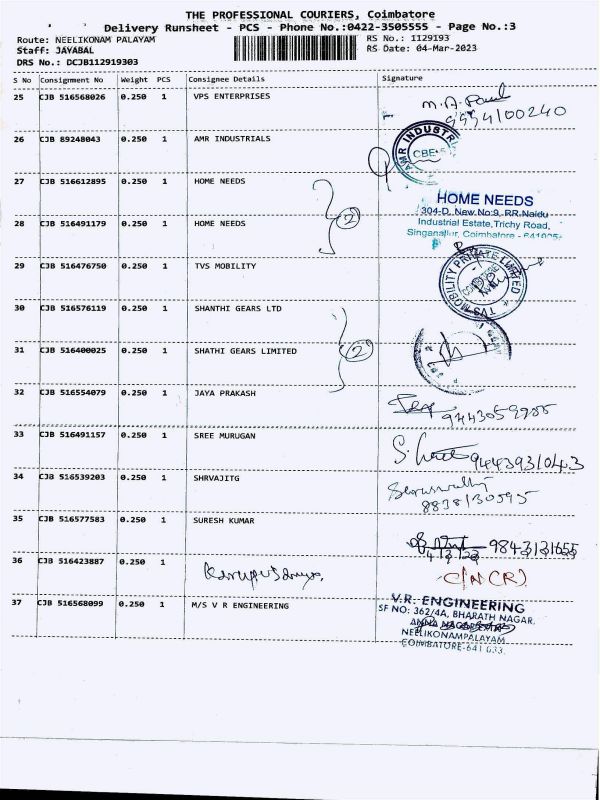 THE PROFESSIONAL COURIERS, Coimbatore
Delivery Runsheet - PCS - Phone No.:0422-3505555 - Page No.:3
Route: NEELIKONAM PALAYAM RS No.: 1129193
Staff: JAYABAL RS Date: 04-Mar-2023
DRS No.: DCJB112919303
S No Consignment No Weight PCS Consignee Details Signature
25 CJB 516568026 0.250 1 VPS ENTERPRISES
M.A.
9994100240
26 CJB 89248043 0.250 1 AMR INDUSTRIALS
AMR INDUSTRI
CBE
27 CJB 516612895 0.250 1 HOME NEEDS
(2)
HOME NEEDS
304-D, New No:9, RR.Naidu
28 CJB 516491179 0.250 1 HOME NEEDS
Industrial Estate,Trichy Road,
Singanallur, Coimbatore - 641005
29 CJB 516476750 0.250 1 TVS MOBILITY
TVS MOBILITY PRIVATE LIMITED
30 CJB 516576119 0.250 1 SHANTHI GEARS LTD
(2)
31 CJB 516400025 0.250 1 SHATHI GEARS LIMITED
32 CJB 516554079 0.250 1 JAYA PRAKASH
33 CJB 516491157 0.250 1 SREE MURUGAN
9443931043
34 CJB 516539203 0.250 1 SHRVAJITG
8838130595
35 CJB 516577583 0.250 1 SURESH KUMAR
9843131655
4/3/23
36 CJB 516423887 0.250 1
C(NCR)
37 CJB 516568099 0.250 1 M/S V R ENGINEERING
V.R. ENGINEERING
SF NO: 362/4A, BHARATH NAGAR,
ANNA NAGAR
NEELIKONAMPALAYAM
COIMBATORE-641 033.